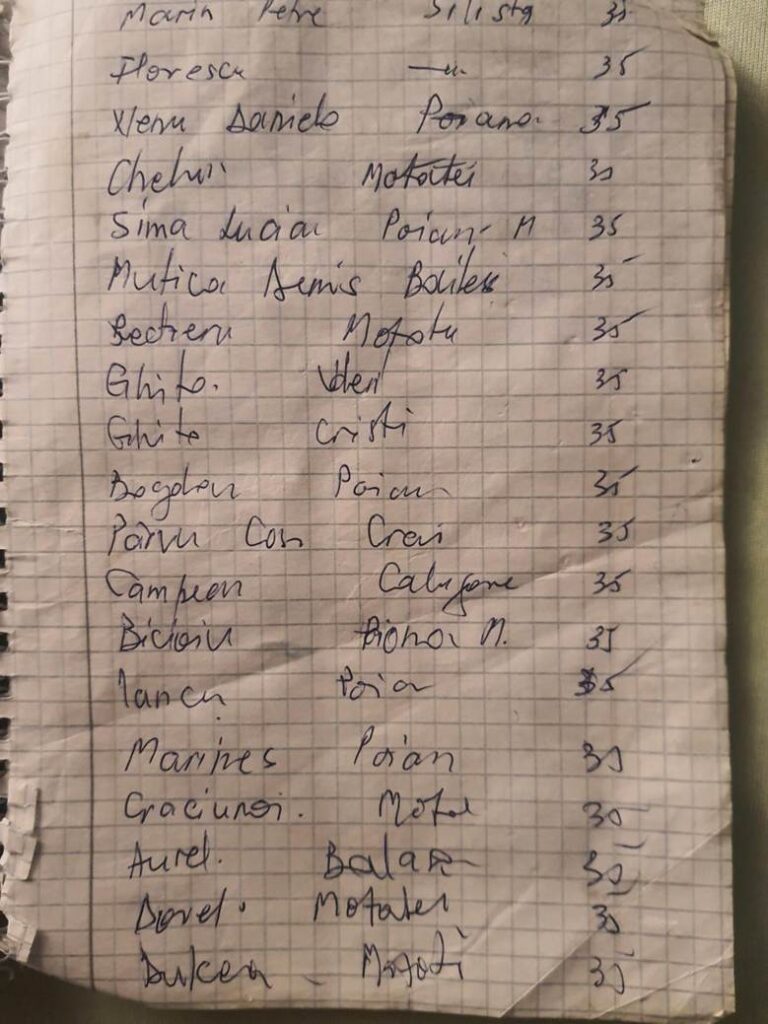 Marin Petre Silista 35
Florescu —"— 35
Daniela Poiana 35
Chelu Motatei 35
Sima Lucian Poian M 35
Mutica Denis Bailes 35
Motatu 35
Ghita. Valeri 35
Ghita Cristi 35
Bogdan Poian 35
Parvu Con Crai 35
Campean Calugare 35
Bicioiu Piona M. 35
Iancu Poian 35
Marines Poian 35
Craciunoi. Mota 35
Aurel. Balas 35
Dorel. Motatei 35
Motati 35